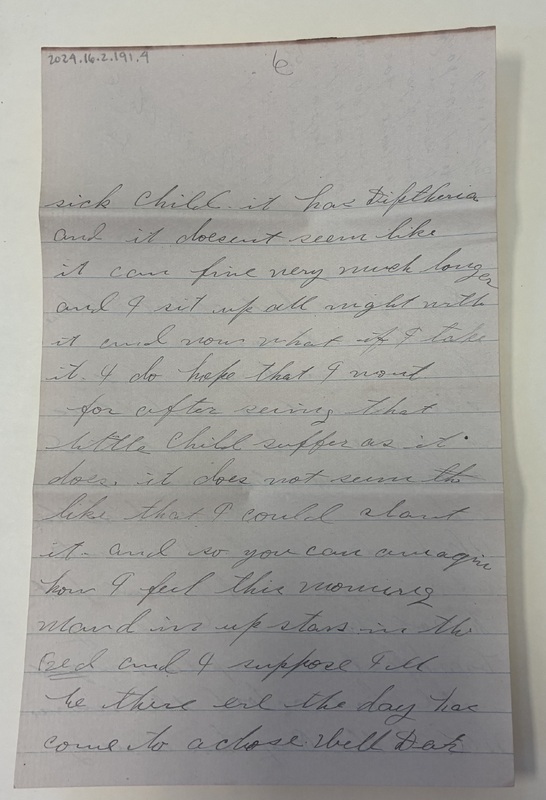 2024.16.2.191.4
6
sick Child. it has Diptheria
and it doesent seem like
it can live very much longer
and I sit up all night with
it and now what if I take
it. I do hope that I wont
for after seeing that
little Child suffer as it
does. it does not seem the
like that I could stant
it. and so you can amagin
how I feel this morning
Maud is up stars in the
Bed and I suppose I'll
be there ere the day has
come to a close. Well Dear